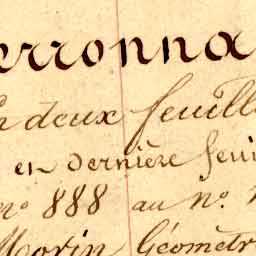 erronna
n deux feuill
en dernière feui
nº 888 au nº.
Morin Géomètr